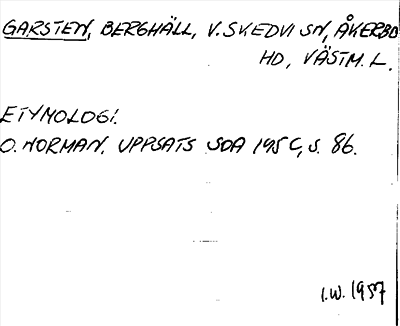 GARSTEN, BERGHÄLL, V. SKEDVI SN, ÅKERBO
HD, VÄSTM. L.
ETYMOLOGI.
O. NORMAN. UPPSATS SOA 195 C, S. 86.
I.W. 1957